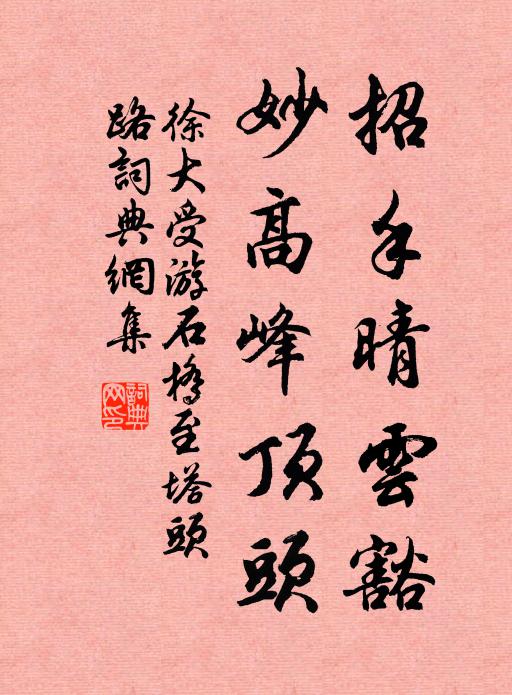 招手晴雲豁
妙高峰頂頭
徐大受游石橋至塔頭
路詞典網集
詞典网印